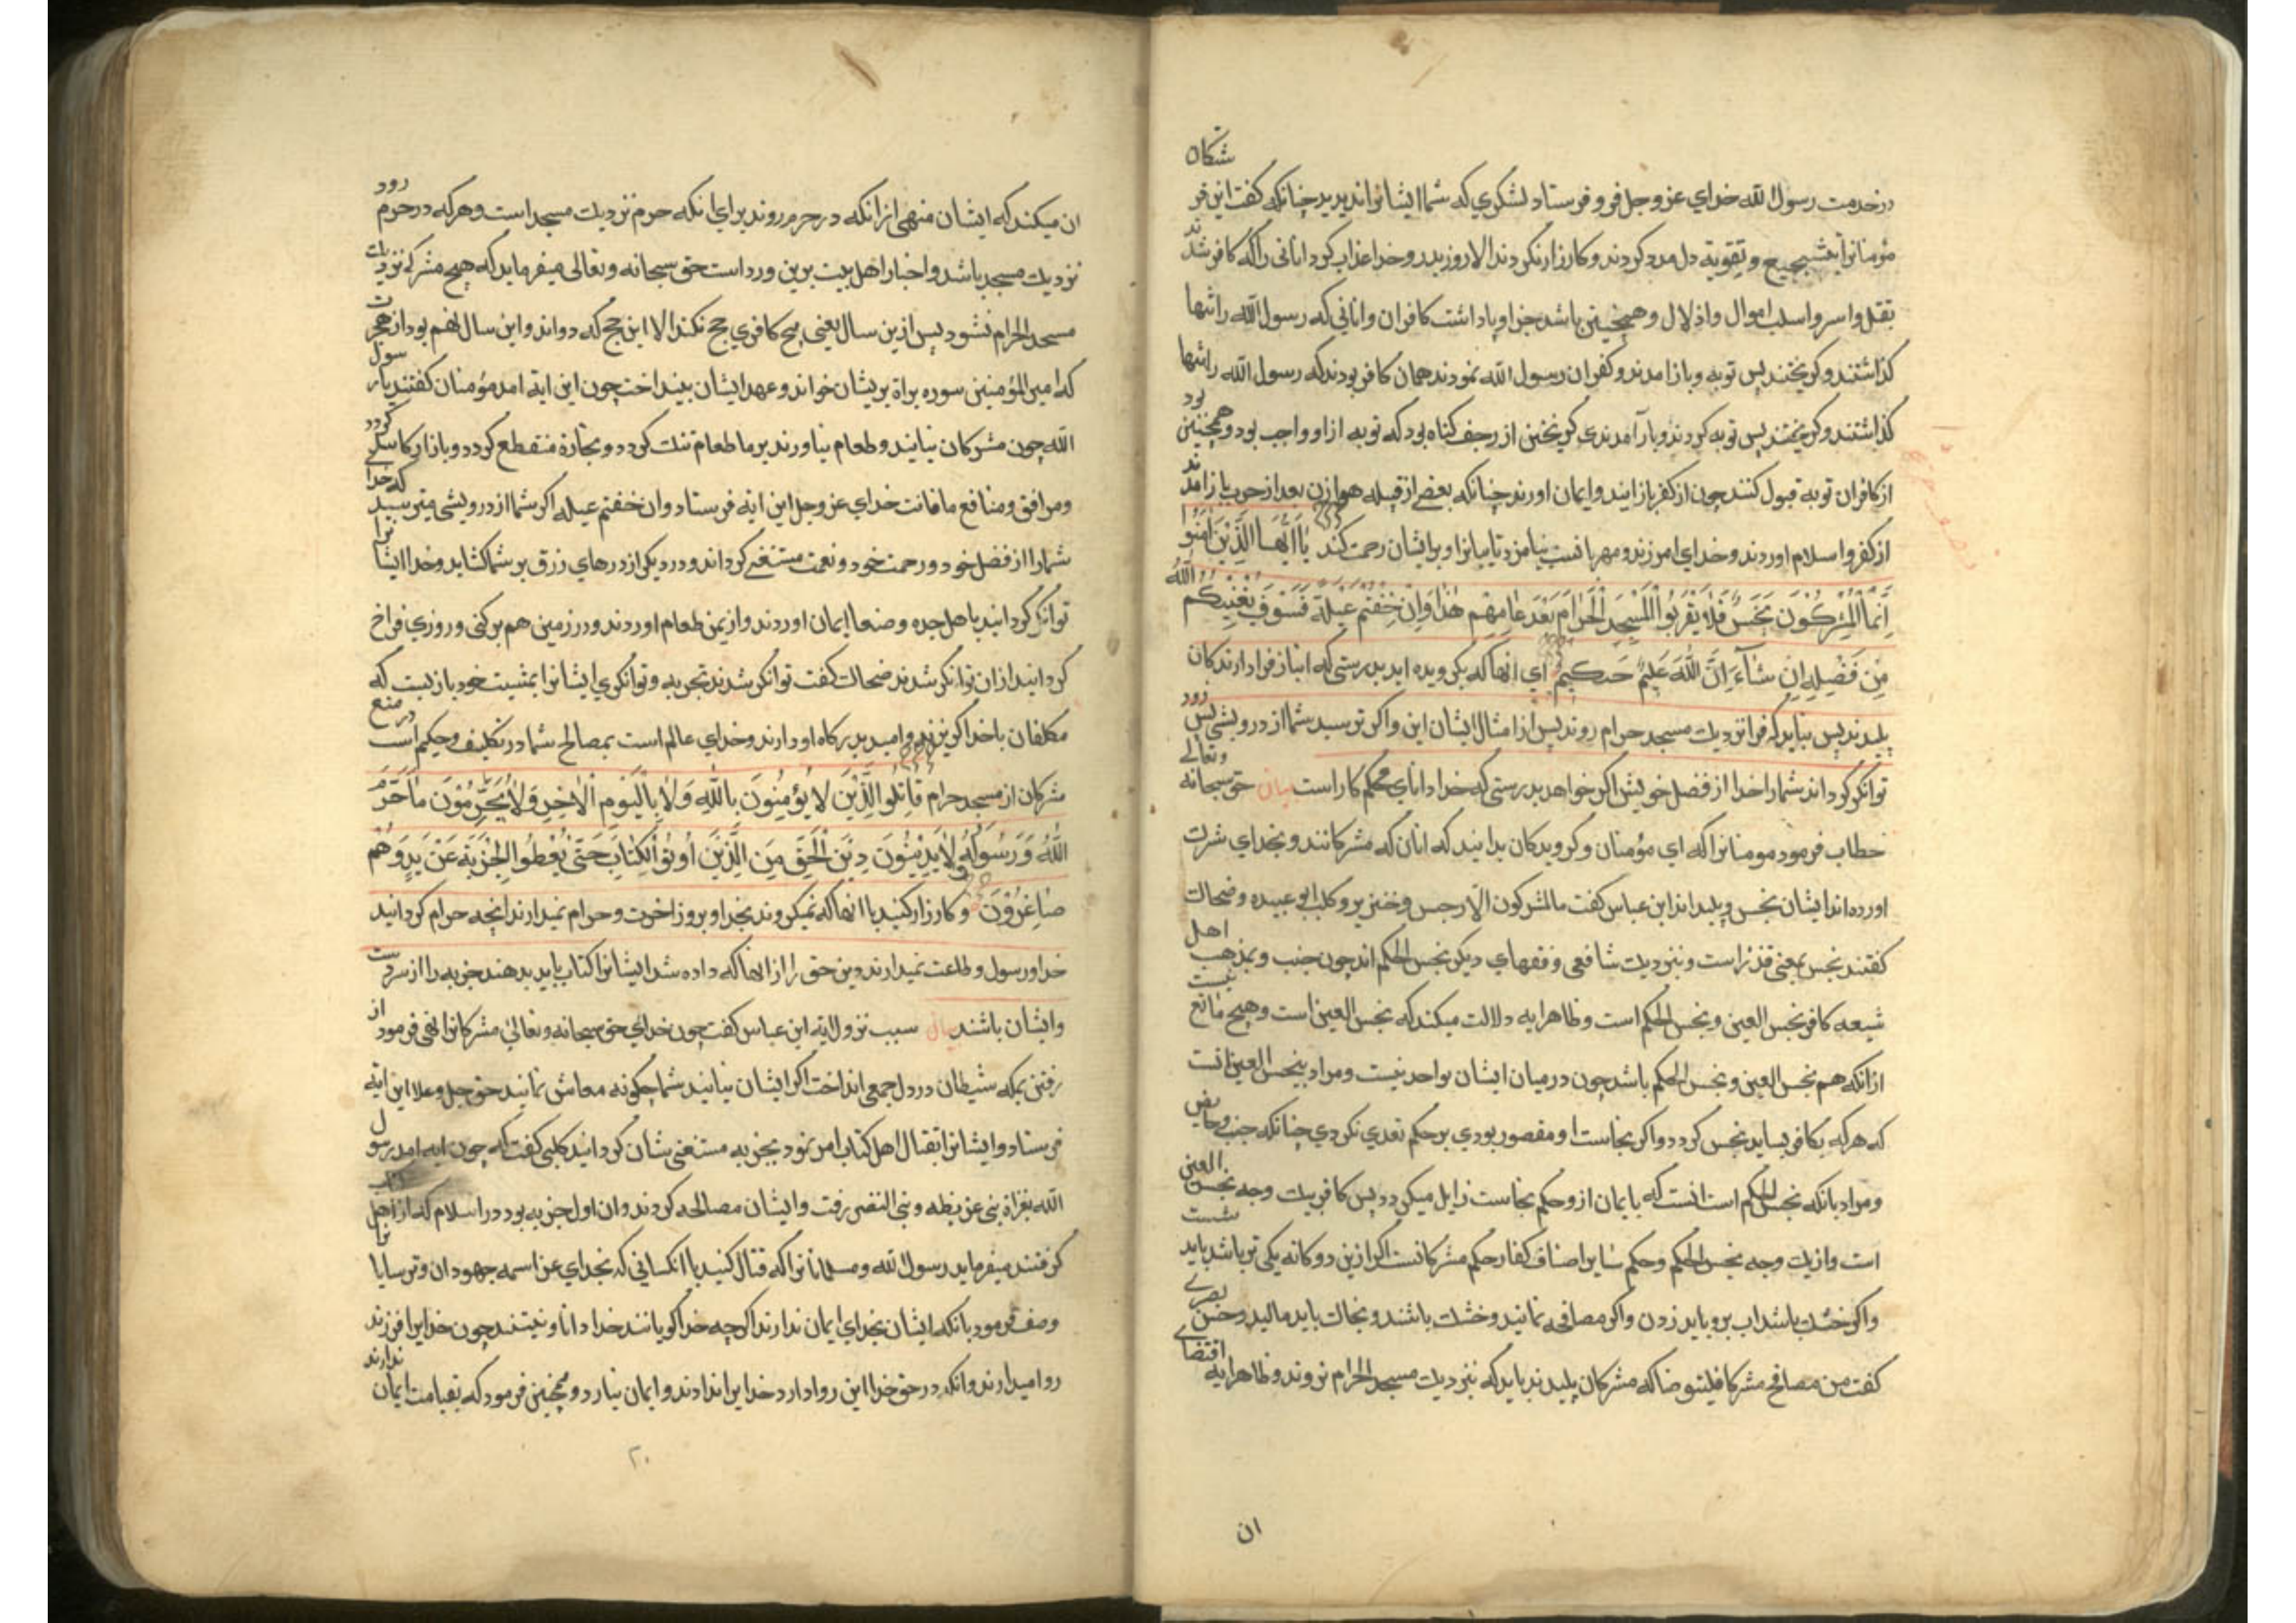 در خدمت رسول الله خدای عز و جل فرو فرستاد لشکری که شما ایشانرا ندیدید چنانکه کفت این فر شتکان
مؤمنانرا بتشجیع و تقویة دل مدد کردند و کارزار نکردند الا روز بدر و خدا عذاب کرد انانی را که کافر شدند
بقتل و اسر و اسلب اموال و اذلال و همچنین باشد جزا و پاداشت کافران و انانی که رسول الله را تنها
کذاشتند و کریختند پس توبه و باز امدند و کفران رسول الله نمودند همان کافر بودند که رسول الله را تنها
کذاشتند و کریختند پس توبه کردند و باز آمدندی کریختن از زحف کناه بود که توبه از او واجب بود و همچنین بود
از کافران توبه قبول کنند چون از کفر باز ایند و ایمان اورند چنانکه بعضی از قبیله هوازن بعد از حرب باز امدند
از کفر و اسلام اوردند و خدای امرزنده و مهربانست بیامرزد تایبانرا و بر ایشان رحمت کند یا ایها الذین امنوا
انما المشرکون نجس فلا یقربوا المسجد الحرام بعد عامهم هذا وان خفتم عیلة فسوف یغنیکم الله
من فضله ان شاء ان الله علیم حکیم ای انها که بکرویده اید بدرستی که انباز فرادارندکان
پلیدند پس نباید که فرا نزدیک مسجد حرام روند پس از امثال ایشان این و اکر ترسید شما از درویشی پس زود
توانکر کرداند شما را خدا از فضل خویش اکر خواهد بدرستی که خدا دانای محکم کار است بیان حق سبحانه وتعالی
خطاب فرمود مومنانرا که ای مؤمنان و کرویدکان بدانید که انان که مشرکانند و بخدای شرک
اورده اند ایشان نجس و پلید اند ابن عباس کفت ما المشرکون الا رجس و خنزیر و کلب ابو عبیده و ضحاک
کفتند نجس بمعنی قذر است و بنزدیک شافعی و فقهای دیکر نجس الحکم اند چون جنب و بمذهب اهل
شیعه کافر نجس العین و نجس الحکم است و ظاهر ایه دلالت میکند که نجس العین است و هیچ مانع نیست
از انکه هم نجس العین و نجس الحکم باشد چون در میان ایشان تواحد نیست و مراد بنجس العین انست
که هر که بکافر بساید نجس کردد و اکر نجاست او مقصور بودی بر حکم تعدی نکردی چنانکه جنب و حایض
و مراد بانکه نجس الحکم است انست که بایمان ازو حکم نجاست زایل میکردد پس کافر بیک وجه نجس العین
است و از یک وجه نجس الحکم و حکم سایر اصناف کفار حکم مشرکانست اکر ازین دوکانه یکی تر باشد باید شست
و اکر خشک باشد اب برو باید زدن و اکر مصافحه نمایند و خشک باشند و بخاک باید مالید و حسن بصری
کفت من صافح مشرکا فلیتوضا که مشرکان پلیدند باید که بنزدیک مسجد الحرام نروند و ظاهر ایه اقتضای
ان
ان میکند که ایشان منهی از انکه در حرم روند برای انکه حرم نزدیک مسجد است و هر که در حرم رود
نزدیک مسجد باشد و اخبار اهل بیت برین ورد است حق سبحانه و تعالی میفرماید که هیچ مشرکی نزدیک
مسجد الحرام نشود پس ازین سال یعنی هیچ کافری حج نکند الا این حج که دواند و این سال نهم بود از هجرت
که امیر المؤمنین سوره براة بریشان خواند و عهد ایشان بینداخت چون این ایة امد مؤمنان کفتند یا رسول
الله چون مشرکان نیایند و طعام نیاورند بر ما طعام تنک کردد و تجارة منقطع کردد و بازار کاسد کردد
و مرافق و منافع ما فانت خدای عز و جل این ایة فرستاد وان خفتم عیله اکر شما از درویشی میترسید که خدا
شما را از فضل خود و رحمت خود و نعمت مستغنی کرداند و در دیکر از درهای رزق بر شما کشاید و خدا ایشانرا
توانکر کردانید باهل جده و صنعا ایمان اوردند و از یمن طعام اوردند و در زمین هم برکنی و روزی فراخ
کردانید از ان توانکر شدند ضحاک کفت توانکر شدند بجزیه و توانکری ایشانرا بمشیت خود باز بست که
مکلفان با خدا کریزند و امید بدرکاه او دارند و خدای عالم است بمصالح شما در تکلیف و حکیم است در منع
مشرکان از مسجد حرام قاتلوا الذین لا یؤمنون بالله ولا بالیوم الاخر ولا یحرمون ما حرم
الله ورسوله ولا یدینون دین الحق من الذین اوتوا الکتاب حتی یعطوا الجزیة عن ید وهم
صاغرون و کارزار کنید با انها که نمیکروند بخدا و بروز اخرت و حرام نمیدارند انچه حرام کردانید
خدا و رسول و طاعت نمیدارند دین حق را از انها که داده شد ایشانرا کتاب باید بدهند جزیه را از سر دست
و ایشان باشند بیان سبب نزول ایه ابن عباس کفت چون خدای حق سبحانه و تعالی مشرکانرا نهی فرمود از
رفتن بمکه شیطان در دل جمعی انداخت اکر ایشان نیایند شما چکونه معاش نمایند حق جل و علا این ایة
فرستاد و ایشانرا بقتال اهل کتاب امر نمود بجزیه مستغنی شان کردانید کلبی کفت که چون ایه امد رسول
الله بغزاة بنی غریظه و بنی النضیر رفت و ایشان مصالحه کردند و ان اول جزیه بود در اسلام که از اهل
کرفتند میفرماید رسول الله و مسلمانانرا که قتال کنید با انکسانی که بخدای عز اسمه جهودان و ترسایانرا
وصف فرمود بانکه ایشان بخدای ایمان ندارند اکرچه خدا کویانند خدا دانا و نیستند چون خدایرا فرزند
روا میدارند وانکه در حق خدا این روا دارد خدایرا ندادند و ایمان نیارد و همچنین فرمود که بقیامت ایمان ندارند
۲۰